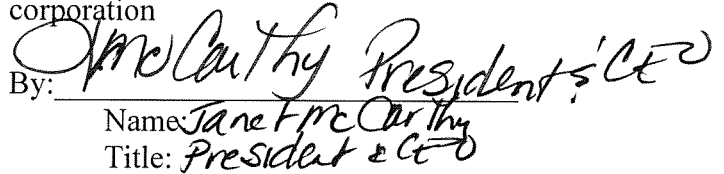 corporation
By: JMcCarthy President & CEO
Name: Janet McCarthy
Title: President & CEO